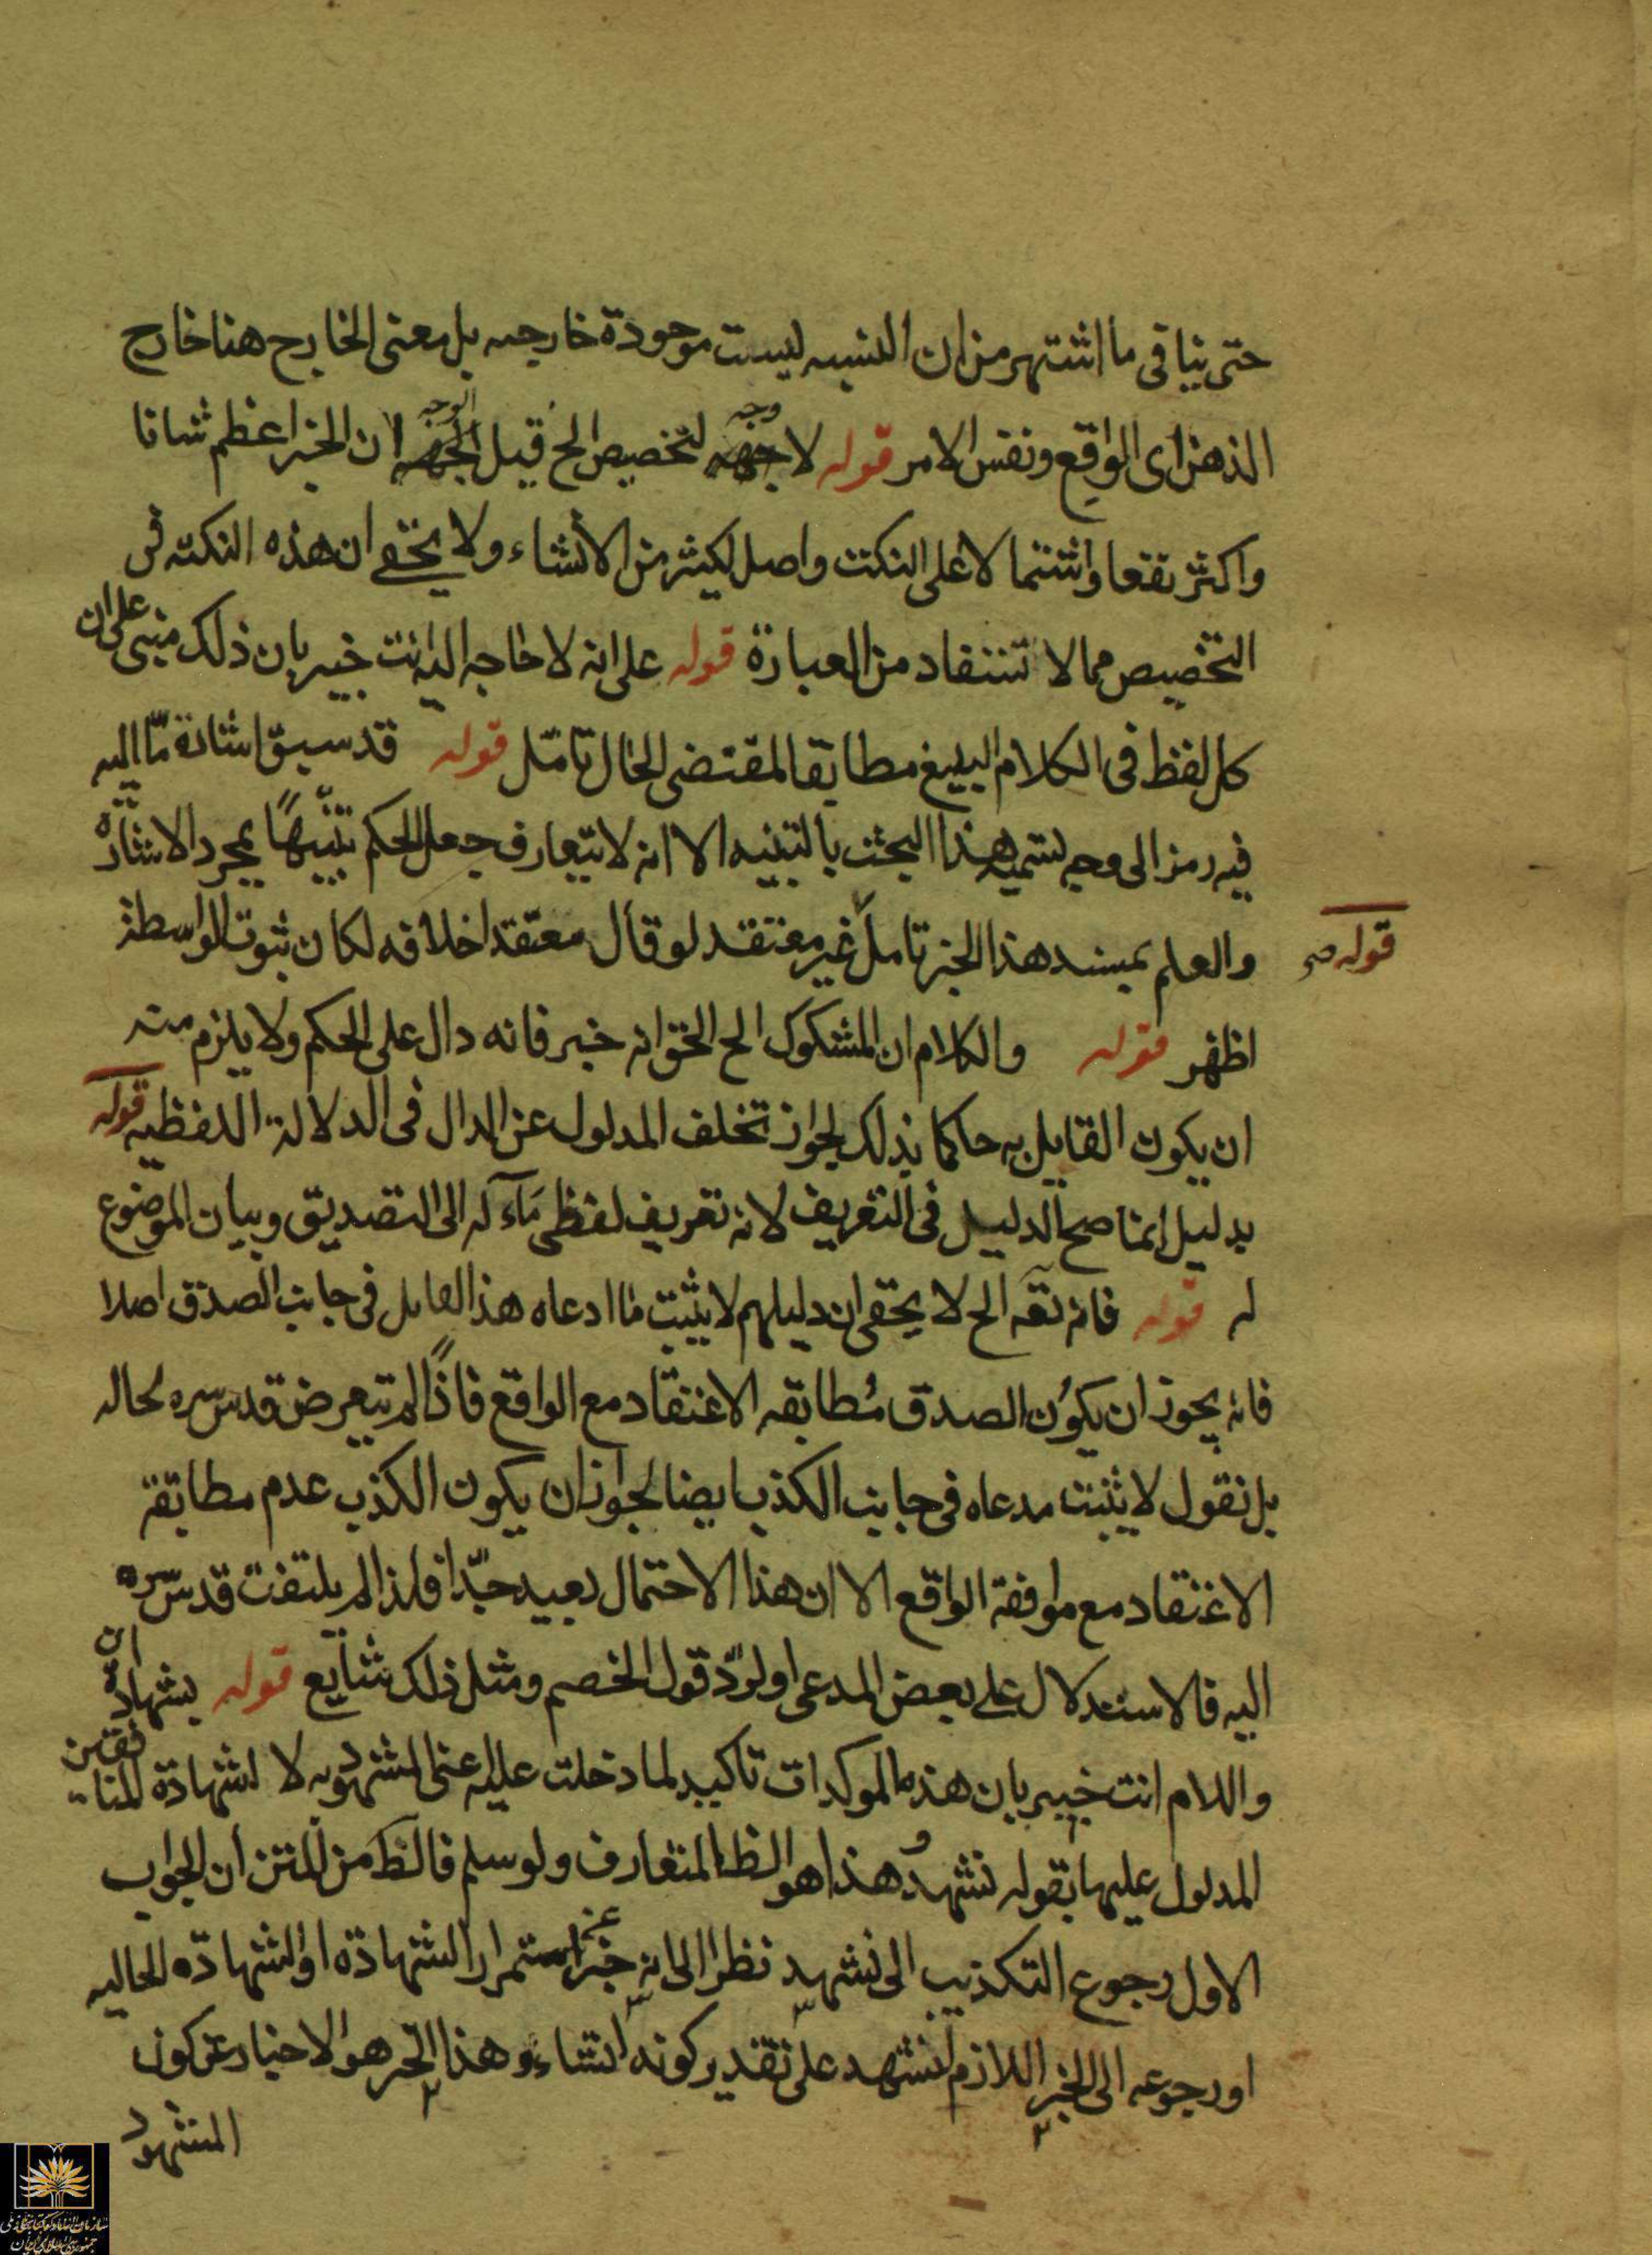 حتى ينافى ما اشتهر من ان النسبه ليست موجودة خارجيه بل معنى الخارج هنا خارج
الذهن اى الواقع ونفس الامر قوله لا جهه وجه لتخصيص الخ قيل الجهه الوجه ان الخبر اعظم شانا
واكثر نفعا واشتمالا على النكت واصل لكثير من الانشاء ولا يخفى ان هذه النكته فى
التخصيص مما لا تستفاد من العبارة قوله على انه لا حاجه اليه انت خبير بان ذلك مبنى على ان
كل لفظ فى الكلام البليغ مطابقا لمقتضى الحال تامّل قوله قد سبق اشارة مّا اليه
فيه رمز الى وجه تسميه هذا البحث بالتنبيه الا انه لا يتعارف جعل الحكم تنبيهًا بمجرد الاشارة
قوله صح
والعلم بمسند هذا الخبر تامل غير معتقد لو قال معتقدا خلافه لكان ثبوت الواسطة
اظهر قوله والكلام ان المشكوك الخ الحق انه خبر فانه دال على الحكم ولا يلزم منه
ان يكون القايل به حاكما بذلك لجواز تخلف المدلول عن الدال فى الدلالة اللفظيه قوله
بدليل انما صح الدليل فى التعريف لانه تعريف لفظى مآله الى التصديق وبيان الموضوع
له قوله فانه نقه الخ لا يخفى ان دليلهم لا يثبت ما ادعاه هذا القايل فى جانب الصدق اصلا
فانه يجوز ان يكون الصدق مُطابقه الاعتقاد مع الواقع فاذًا لم يتعرض قدس سره لحاله
بل نقول لا يثبت مدعاه فى جانب الكذب ايضا لجواز ان يكون الكذب عدم مطابقة
الاعتقاد مع موافقة الواقع الا ان هذا الاحتمال بعيد جدّا فلذا لم يلتفت قدسّ سره
اليه فالاستدلال على بعض المدعى او لردّ قول الخصم ومثل ذلك شايع قوله بشهادة ان
واللام انت خبير بان هذه الموكدات تاكيد لما دخلت عليه اعنى المشهود به لا لشهادة المنافقين
المدلول عليها بقوله نشهد وهذا هو الظ المتعارف ولو سلم فالظ من المتن ان الجواب
الاول رجوع التكذيب الى نشهد نظرا الى انه خبر عن استمرار الشهادة او الشهادة الحاليه
او رجوعه الى الخبر اللازم لنشهد على تقدير كونه انشاء وهذا الخبر هو الاخبار عن كون
المشهود